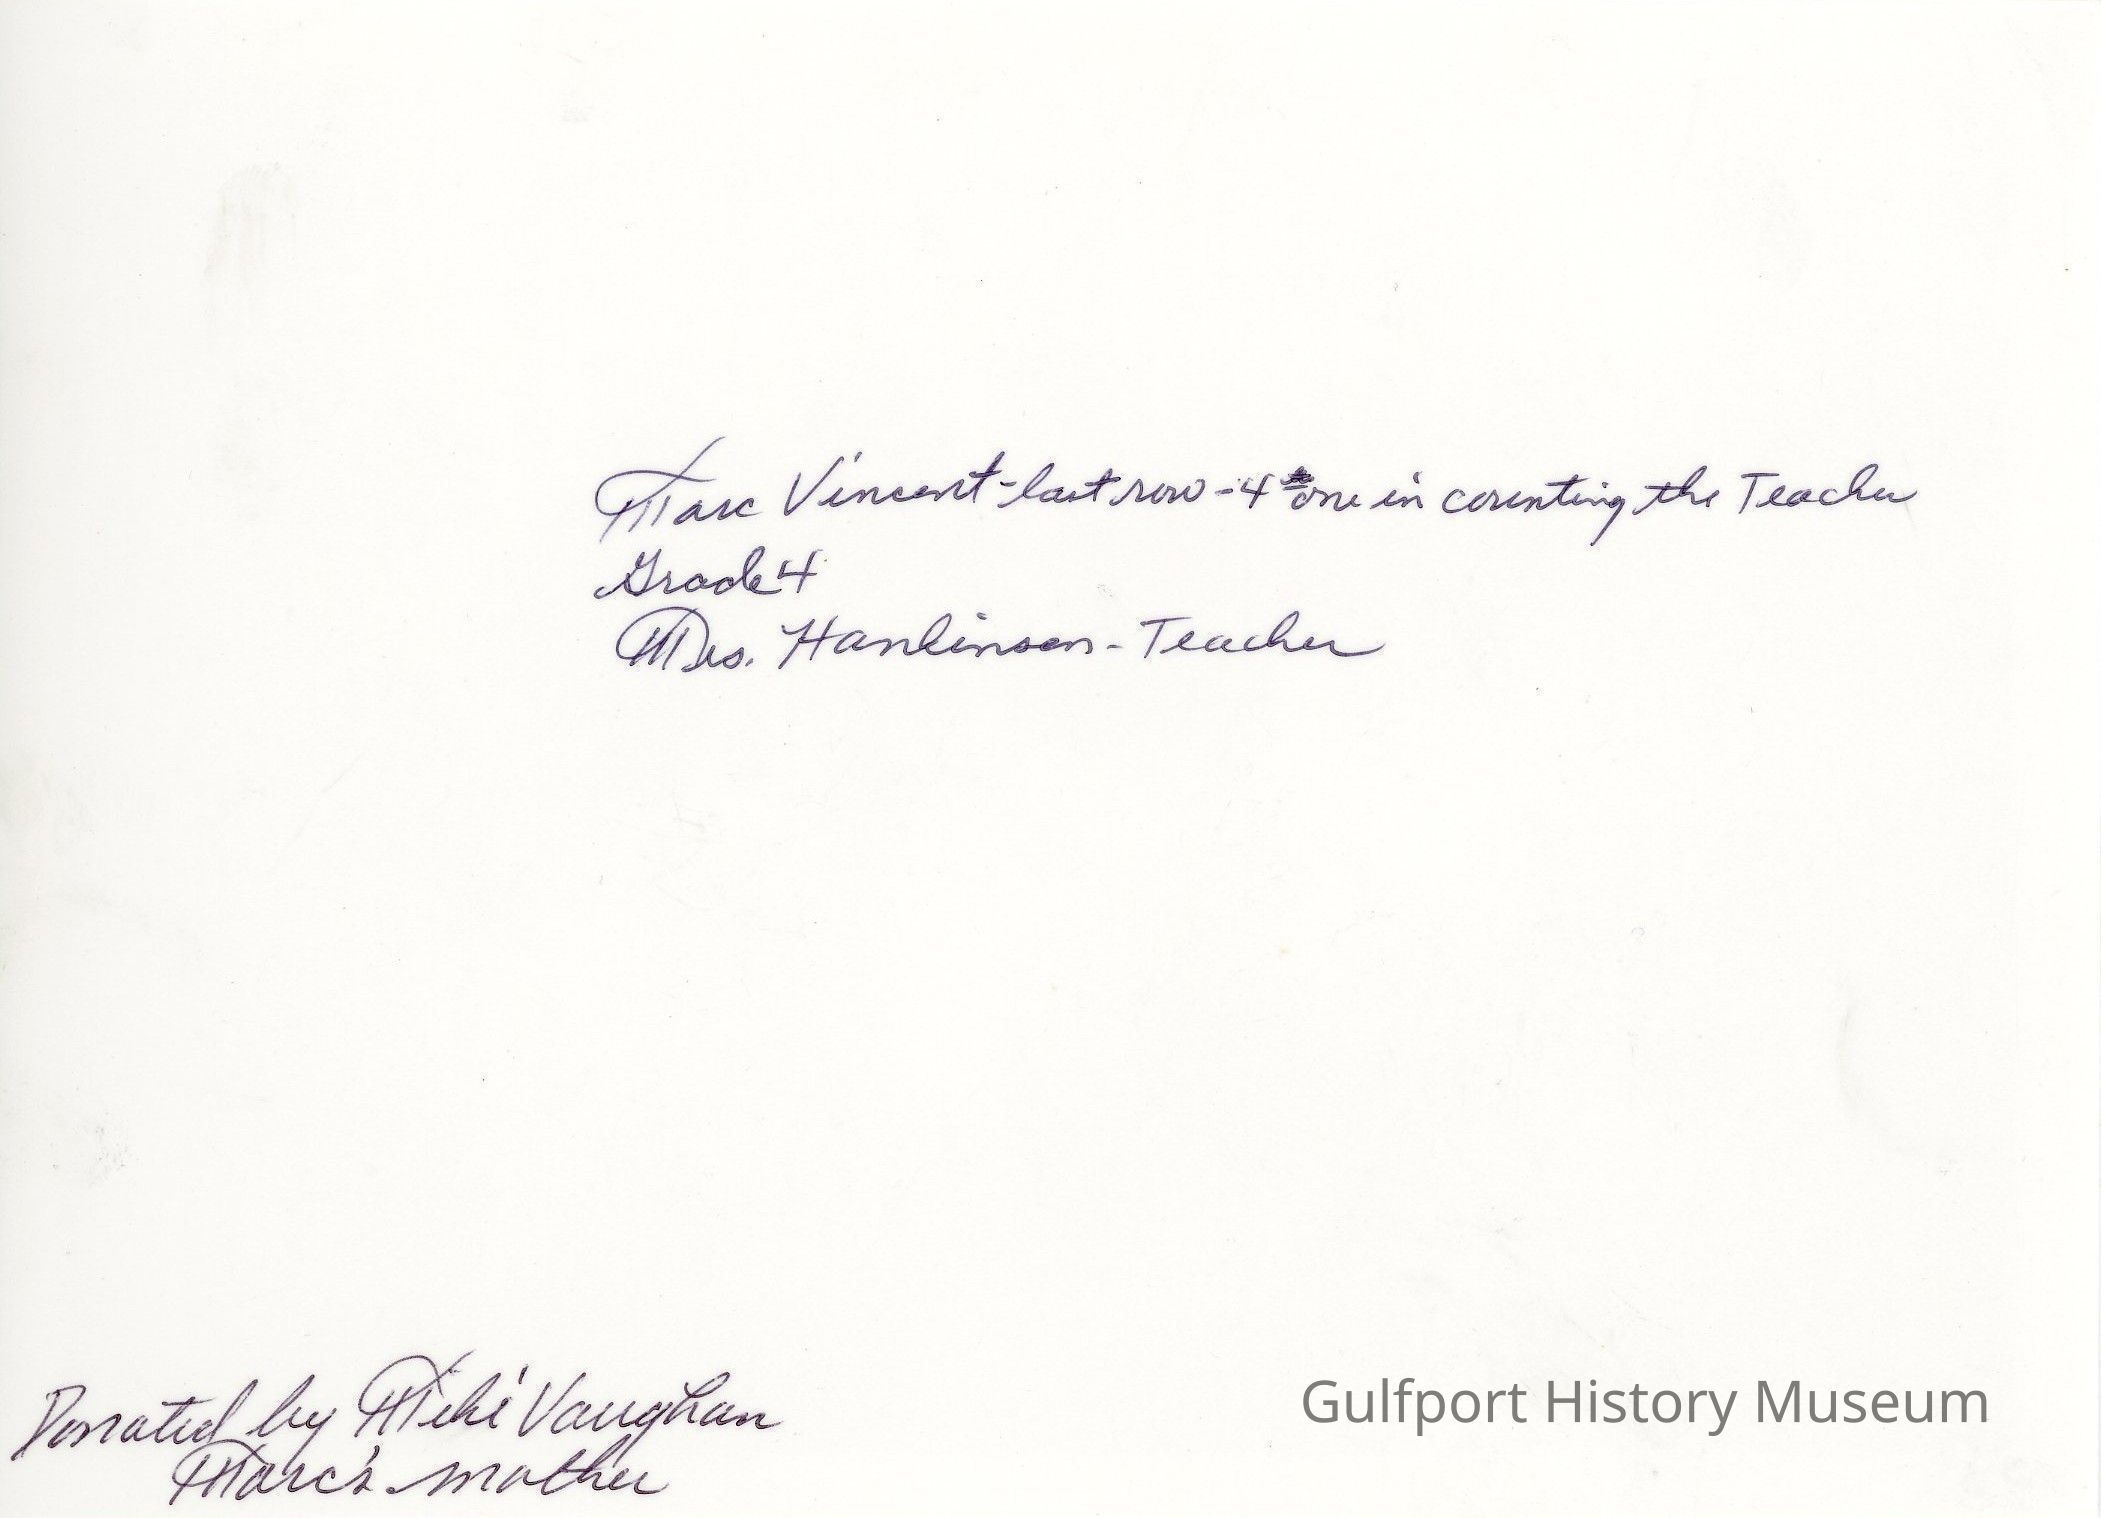 Marc Vincent - last row - 4th one in counting the Teacher
Grade 4
Mrs. Hanlinson - Teacher
Donated by Miki Vaughan
Marc's mother
Gulfport History Museum